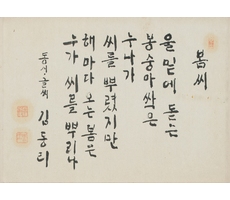 봄씨
울 밑에 돋는
봉숭아 싹은
누나가
씨를 뿌렸지만
해마다 오는 봄은
누가 씨를 뿌리나
글씨 김동리